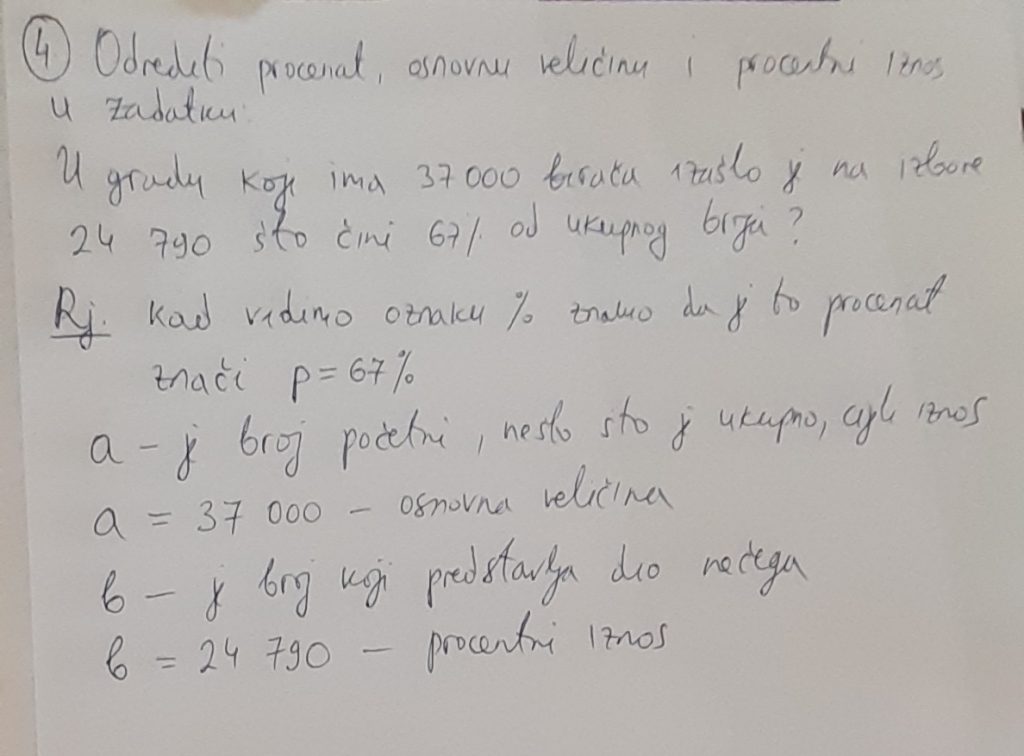 4. Odrediti procenat, osnovnu veličinu i procentni iznos
u zadatku:
U gradu koji ima 37 000 birača izašlo je na izbore
24 790 što čini 67% od ukupnog broja?
Rj. Kad vidimo oznaku % znamo da je to procenat
znači p = 67%
a - je broj početni, nešto što je ukupno, cijeli iznos
a = 37 000 - osnovna veličina
b - je broj koji predstavlja dio nečega
b = 24 790 - procentni iznos